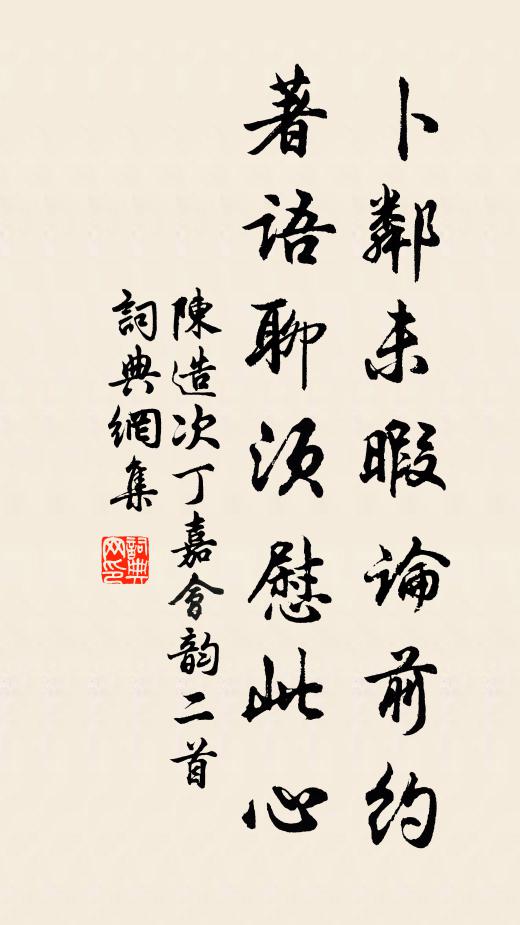 卜鄰未暇論前約
著語聊須慰此心
陳造次丁嘉會韵二首
詞典網集
詞典网印